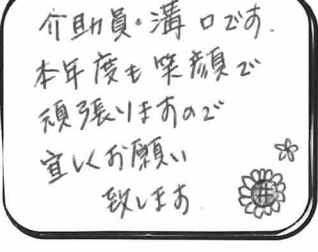 介助員・溝口です.
本年度も笑顔で
頑張りますので
宜しくお願い
致します